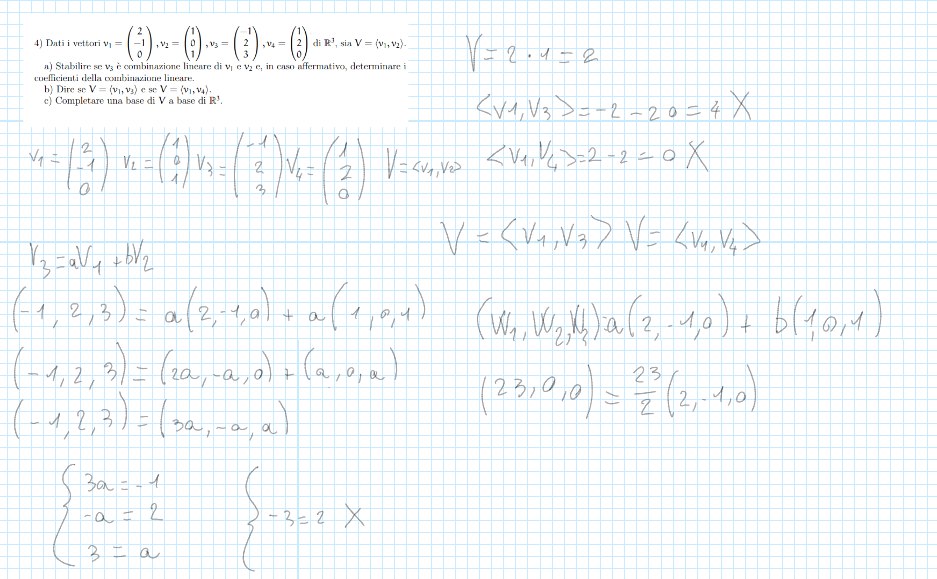 4) Dati i vettori v₁ = (2 −1 0), v₂ = (1 0 1), v₃ = (−1 2 3), v₄ = (1 2 0) di ℝ³, sia V = ⟨v₁, v₂⟩.
a) Stabilire se v₃ è combinazione lineare di v₁ e v₂ e, in caso affermativo, determinare i
coefficienti della combinazione lineare.
b) Dire se V = ⟨v₁, v₃⟩ e se V = ⟨v₁, v₄⟩.
c) Completare una base di V a base di ℝ³.
V1 = (2 -1 0) V2 = (1 0 1) V3 = (-1 2 3) V4 = (1 2 0) V = <V1, V2>
V3 = aV1 + bV2
(-1, 2, 3) = a(2,-1,0) + a(1,0,1)
(-1, 2, 3) = (2a, -a, 0) + (a, 0, a)
(-1, 2, 3) = (3a, -a, a)
{ 3a = -1
-a = 2
3 = a
{ -3 = 2 X
V = 2 · 1 = 2
<V1, V3> = -2 - 2 0 = 4 X
<V1, V4> = 2 - 2 = 0 X
V = <V1, V3> V = <V1, V4>
(W1, W2, W3) = a(2, -1, 0) + b(1, 0, 1)
(23, 0, 0) = 23/2 (2, -1, 0)